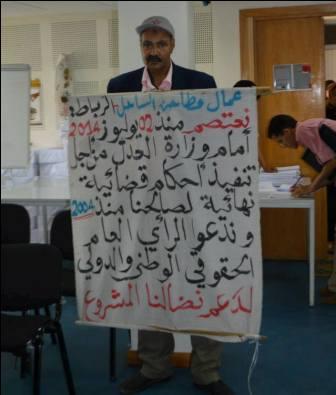 عمال مطاحن الساحل الرباط
نعتصم منذ 02 يوليوز 2014
أمام وزارة العدل من أجل
تنفيذ أحكام قضائية
نهائية لصالحنا منذ 2004
وندعو الرأي العام
الحقوقي الوطني والدولي
لدعم نضالنا المشروع